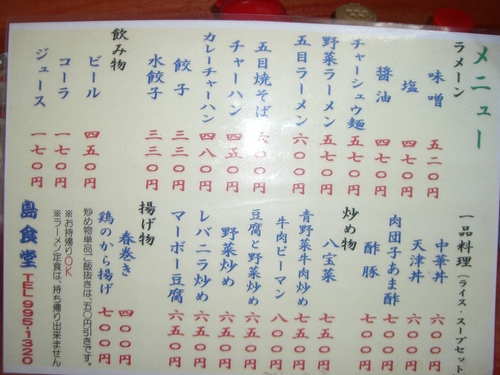 メニュー
ラーメン
味噌 五二〇円
塩 四七〇円
醤油 四七〇円
チャーシュウ麺 五七〇円
野菜ラーメン 五七〇円
五目ラーメン 六〇〇円
五目焼そば 六〇〇円
チャーハン 四五〇円
カレーチャーハン 四八〇円
餃子 三三〇円
水餃子 三三〇円
飲み物
ビール 四五〇円
コーラ 一七〇円
ジュース 一七〇円
一品料理(ライス・スープセット)
中華丼 六〇〇円
天津丼 六〇〇円
肉団子あま酢 七〇〇円
酢豚 七〇〇円
炒め物
八宝菜 七〇〇円
青野菜牛肉炒め 七五〇円
牛肉ピーマン 八〇〇円
豆腐と野菜炒め 六五〇円
野菜炒め 六五〇円
レバニラ炒め 六五〇円
マーボー豆腐 六五〇円
揚げ物
春巻き 四〇〇円
鶏のから揚げ 七〇〇円
炒め物単品ご飯抜きは、五〇円引きです。
※お持帰りOK
※ラーメン定食は、持ち帰り出来ません
島食堂 TEL995-1320